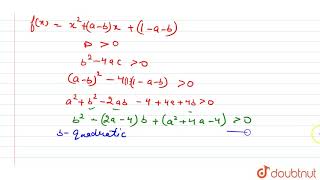 f(x) = x²+(a-b)x + (1-a-b)
D > 0
b²-4ac >0
(a-b)² - 4(1)(1-a-b) >0
a²+b²-2ab -4+4a+4b>0
b² -(2a-4)b + (a²+4a-4) >0
b-quadratic
doubtnut